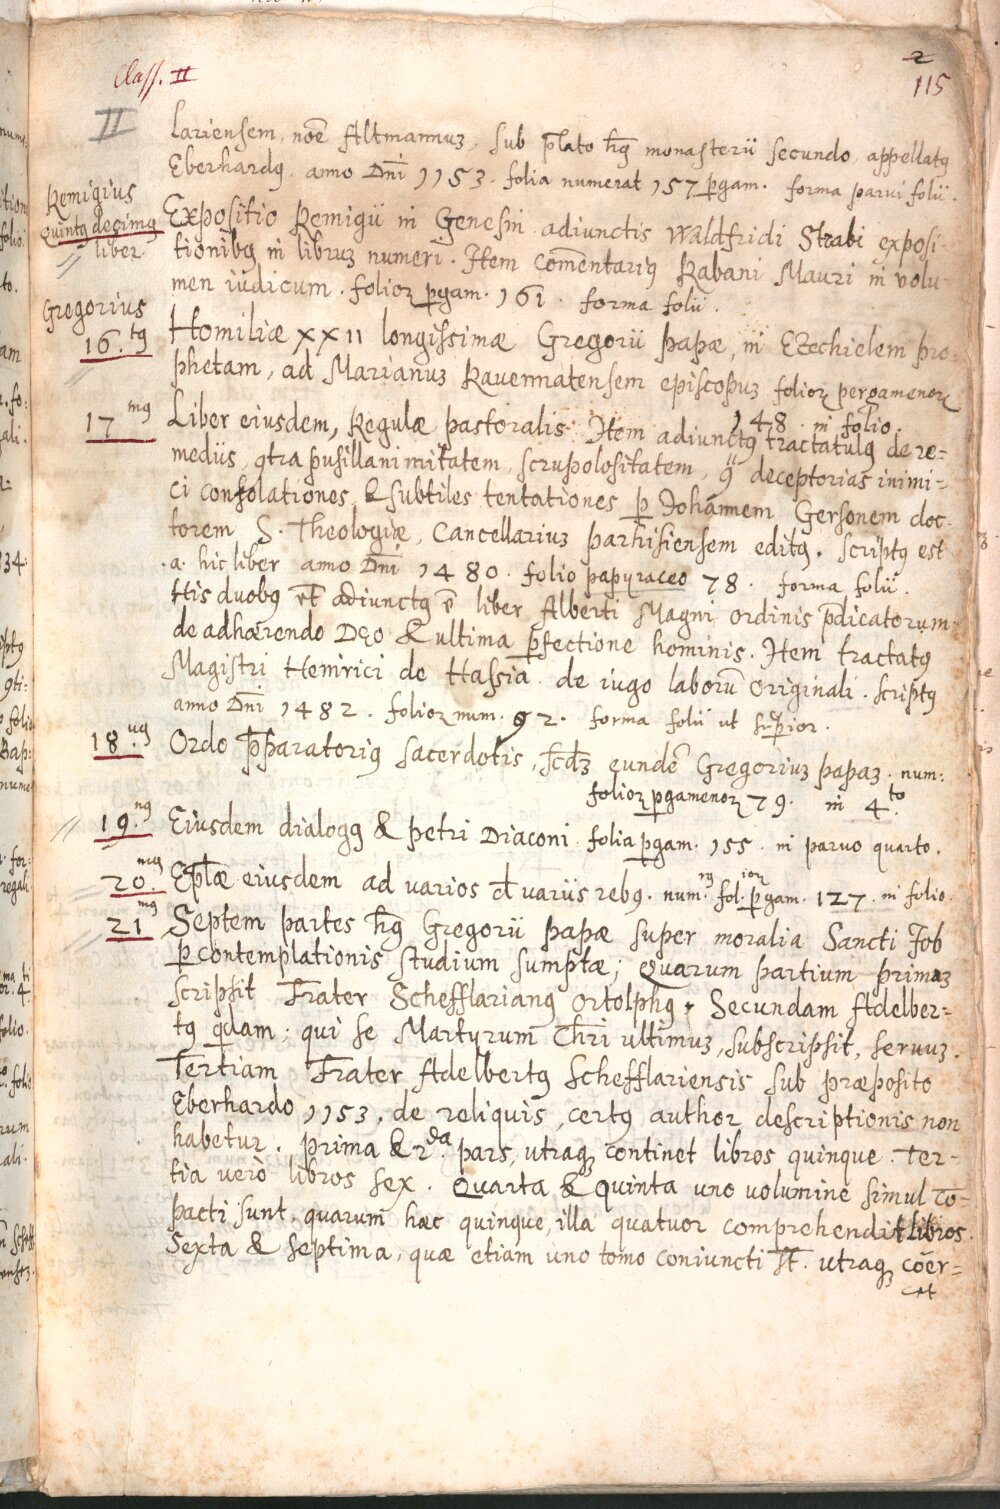 Class. II
2
115
II
lariensem, noe͂ Altmannuꝫ, sub p̄lato hꝯ monasterii secundo, appellatꝯ
Eberhardꝯ. anno Dn̄i 1153. folia numerat 157 ꝑgam. forma parui folii.
Remigius
Quintꝯ decimꝯ
liber
Expositio Remigii in Genesin adiunctis Waldfridi Strabi exposi-
tionibꝯ in libruꝫ numeri. Item com̄entariꝯ Rabani Mauri in volu-
men iudicum. folioꝝ ꝑgam. 161. forma folii.
Gregorius
16.tꝯ
Homiliæ XXII longissimæ Gregorii papæ, in Ezechielem pro-
phetam, ad Marianuꝫ Rauennatensem episcopuꝫ folioꝝ pergamenoꝝ
148. in folio.
17mꝯ
Liber eiusdem, Regulæ pastoralis. Item adiunctꝯ tractatulꝯ de re=
mediis, ꝯtra pusillanimitatem, scrupolositatem, ꝯ deceptorias inimi-
ci consolationes, & subtiles tentationes ꝑ Johannem Gersonem doc-
torem S. Theologiæ, Cancellariuꝫ parhisiensem editꝯ. scriptꝯ est
a. hic liber anno Dn̄i 1480. folio papyraceo 78. forma folii.
His duobꝯ et adiunctꝯ ē liber Alberti Magni ordinis p̄dicatorum
de adhærendo Deo & ultima ꝑfectione hominis. Item tractatꝯ
Magistri Heinrici de Hassia de iugo laborū originali. scriptꝯ
anno Dn̄i 1482. folioꝝ num. 92. forma folii ut suꝑior.
18.uꝯ
Ordo p̄paratoriꝯ sacerdotis, scd̄ꝫ eundē Gregoriuꝫ papaꝫ. num:
folioꝝ ꝑgamenoꝝ 79. in 4to.
19.nꝯ
Eiusdem dialogꝯ & petri Diaconi folia ꝑgam. 155. in paruo quarto.
20.mꝯ
Ep̄læ eiusdem ad varios d̄ variis rebꝯ. num.rꝯ fol.ioꝝ ꝑgam. 127. in folio.
21mꝯ
Septem partes hꝯ Gregorii papæ super moralia Sancti Job
ꝑ contemplationis studium sumptæ; Quarum partium primaꝫ
scripsit Frater Schefflarianꝯ Ortolphꝯ. Secundam Adelber=
tꝯ qdam; qui se Martyrum Chri ultimuꝫ, subscripsit, seruuꝫ.
Tertiam Frater Adelbertꝯ Schefflariensis sub præposito
Eberhardo 1153, de reliquis, certꝯ author descriptionis non
habetur. Prima & 2da pars, utraqꝫ continet libros quinque. Ter-
tia verò libros sex. Quarta & Quinta uno volumine simul cō-
pacti sunt, quarum hæc quinque, illa quatuor comprehendit libros.
Sexta & Septima, quæ etiam uno tomo coniuncti st̄. utraqꝫ coēr=
cet